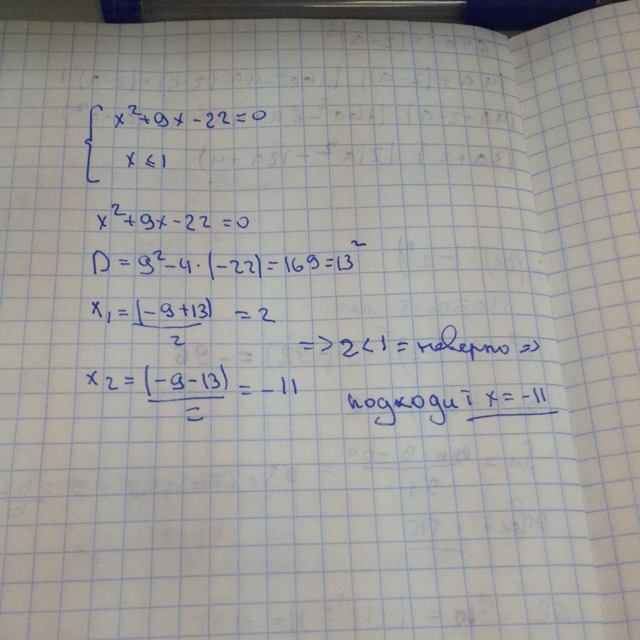 x²+9x-22=0
x≤1
x²+9x-22=0
D=9²-4·(-22)=169=13²
x₁=(-9+13)/2=2
=>2<1=неверно=>
x₂=(-9-13)/=-11
подходит x=-11